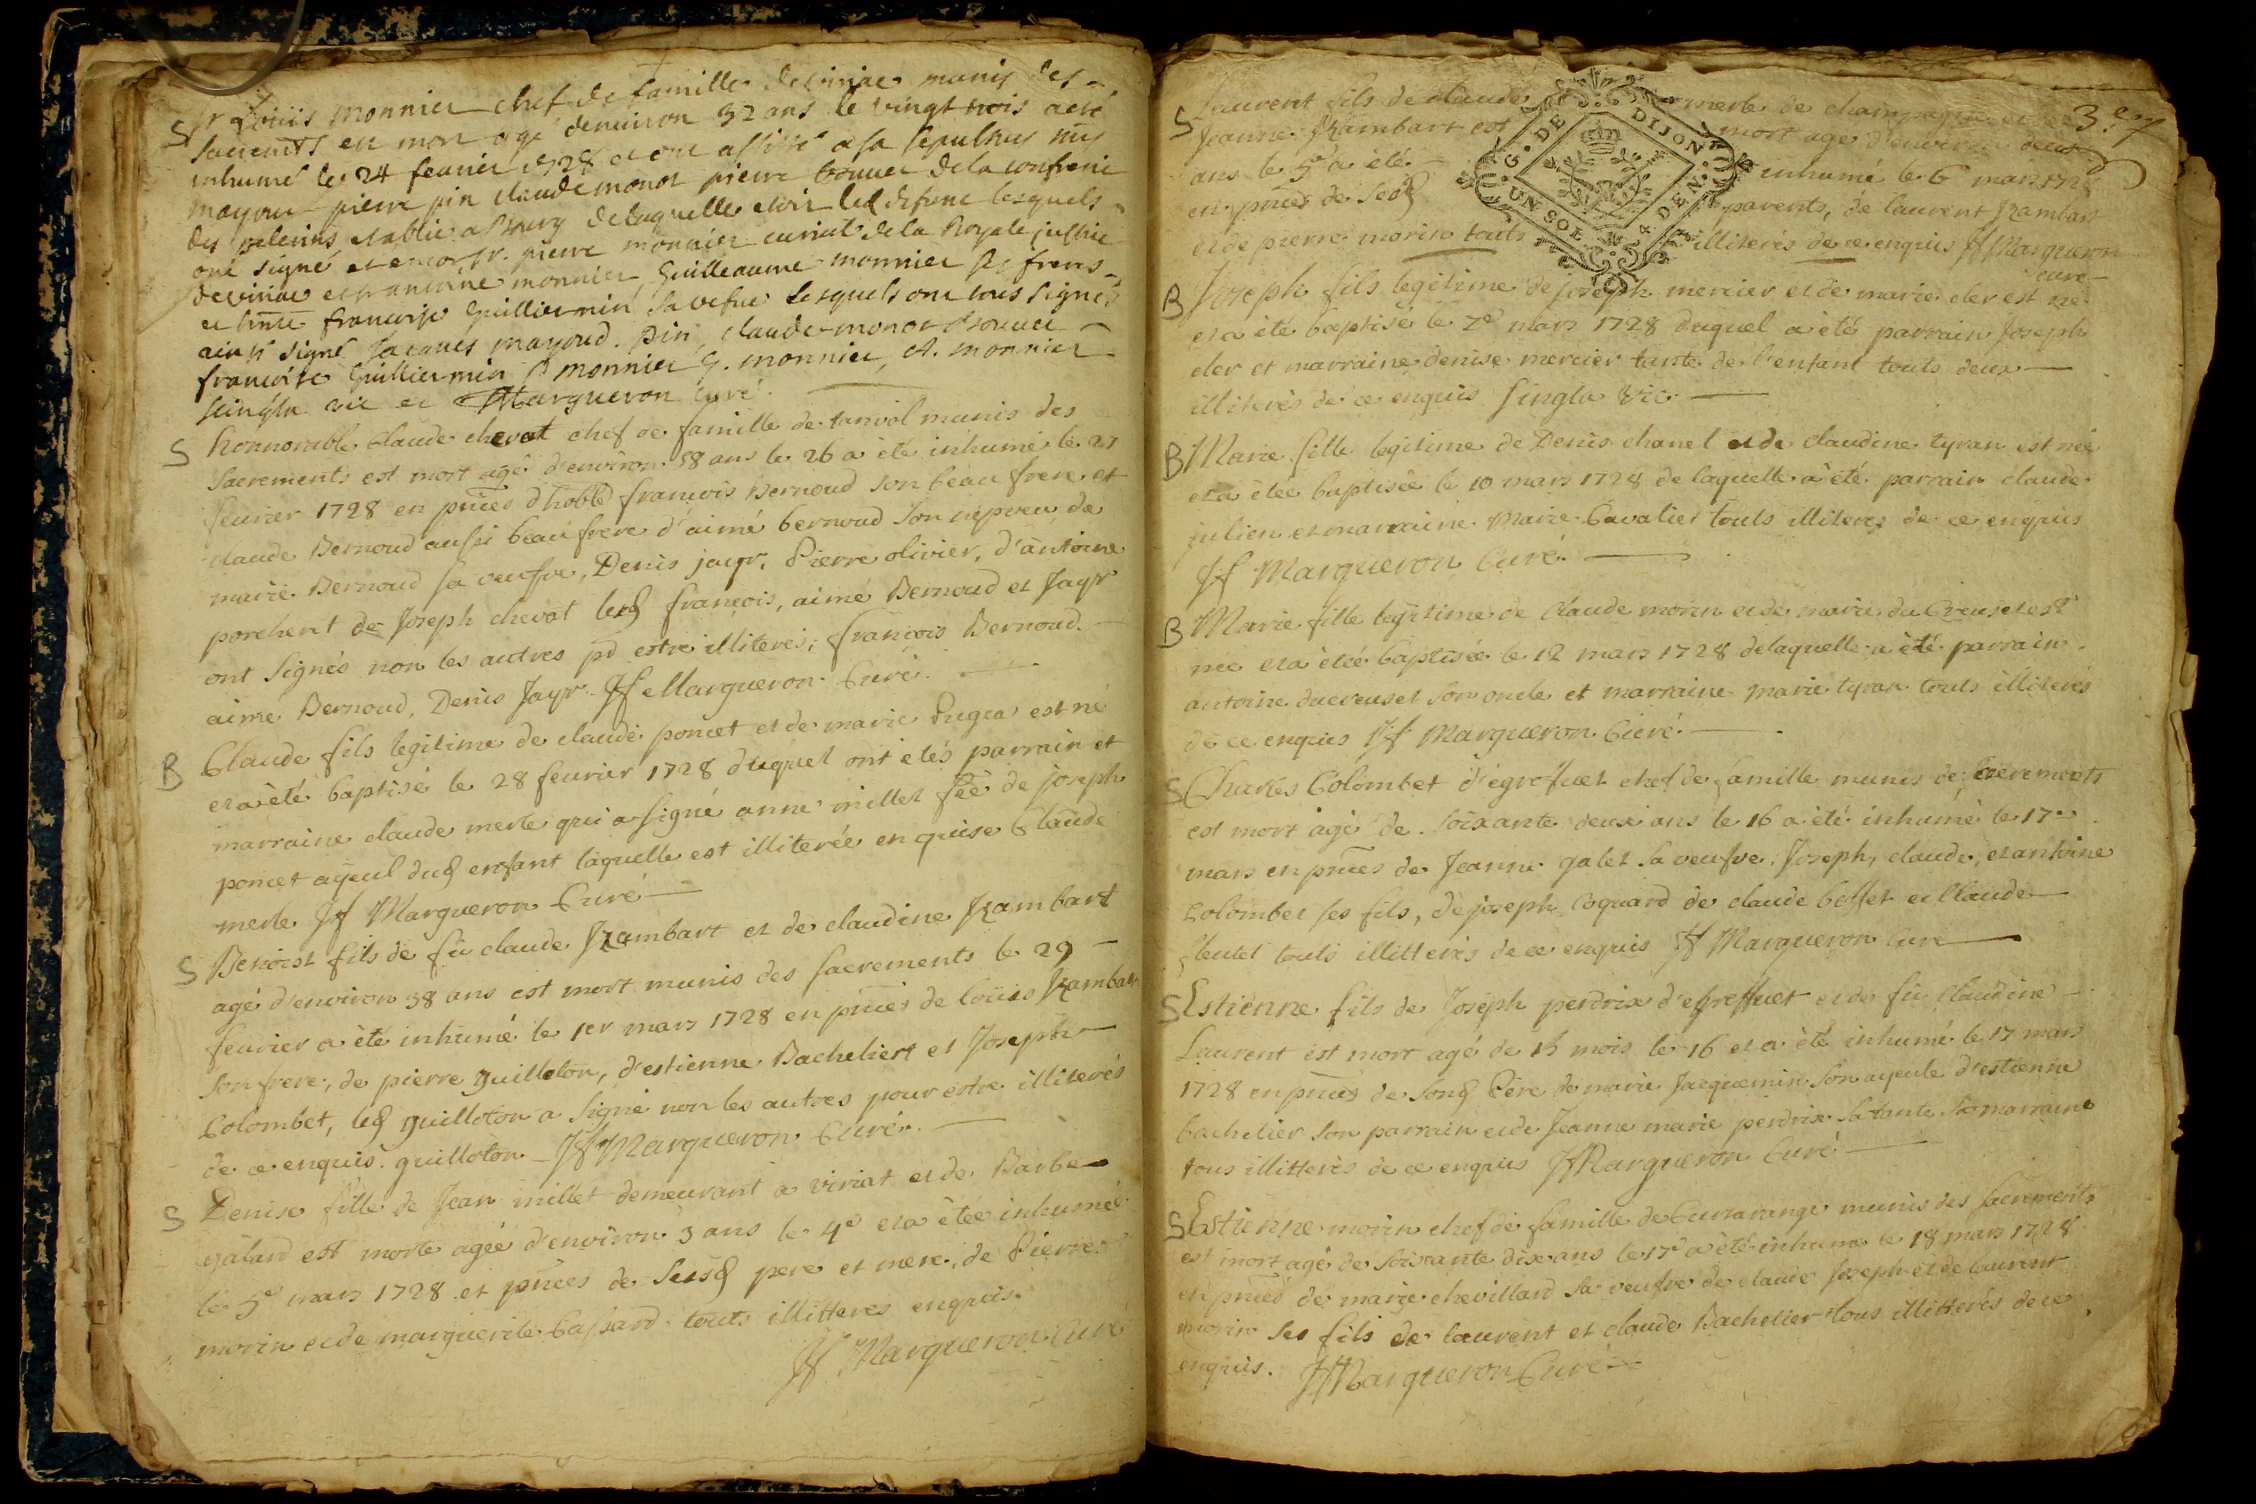 S
Sr Louis monnier chef de famille de viriac munis des
sacrements est mort agé denviron 32 ans le vingt trois a eté
inhumé le 24 feuvrier 1728 et ont assisté a sa sepulture
mayoud pierre pin claude monot pierre brouer de la confrerie
des pelerins etablie a Bourg de laquelle etoit led defunt lesquels
ont signé et encor sr. pierre monnier curial de la Royale justice
de viriac et antoine monnier, Guilleaume monnier ses freres
et françoise Guilliermin sa vefue lesquels ont tous signés
ainsi signé Jacques mayoud. Pin, claude monot
françoise Guilliermin P monnier G. monnier, A. monnier
Singla vic et Margueron Curé.
S
honnorable Claude chevat chef de famille de tanvol munis des
sacrements est mort agé d'environ 58 ans le 26 a été inhumé le 27
feurier 1728 en pnces d'hoble françois Bernoud son beau frere et
claude Bernoud aussi beaufrere d'aimé bernoud son nepveu de
marie Bernoud sa veufve, Denis jayr, Pierre olivier, d'antoine
porcheret de Joseph chevat lesd françois, aimé Bernoud et Jayr
ont signés non les autres pr estre illiterés; françois Bernoud.
aime Bernoud, Denis Jayr Jf Margueron Curé.
B
Claude fils legitime de claude poncet et de marie est né
et a été baptisé le 28 feurier 1728 duquel ont etés parrain et
marraine claude merle qui a signé anne millet fee de joseph
poncet ayeul dud enfant laquelle est illiterée enquise Claude
merle Jf Margueron Curé
S
Benoist fils de fû claude Rambart et de claudine Rambart
agé d'environ 38 ans est mort munis des sacrements le 29
feurier a été inhumé le 1er mars 1728 en pnces de loüis Rambart
son frere, de pierre guilloton, d'estienne Bachelier et Joseph
Colombet, led guilloton a signé non les autres pour estre illiterés
de ce enquis. guilloton Jf Margueron Curé.
S
Denise fille de Jean millet demeurant a viriat et de Barbe
galand est morte agée d'environ 3 ans le 4e et a étée inhumée
le 5e mars 1728 et pnces de sesd pere et mere, de Pierre
morin et de marguerite tous illitteres enquis.
Jf Margueron Curé
3e
S
Laurent fils de claude merle de
Jeanne Rambart est mort agé d'environ deux
ans le 5e a été inhumé le 6e mars 1728
en pnces de sesd parents, de laurent Rambart
et de pierre morin touts illiterés de ce enquis Jf Margueron
Curé
G. DE DIJON
UN SOL 4 DEN.
B
Joseph fils legitime de joseph mercier et de marie cler est né
et a été baptisé le 7e mars 1728 duquel a été parrain Joseph
cler et marraine denise mercier tante de l'enfant touts deux
illiterés de ce enquis Singla Vic.
B
Marie fille legitime de Denis chanel et de claudine tyran est née
et a étée baptisée le 10 mars 1728 de laquelle a été parrain claude
julien et marraine Marie Cavalier touts illiteres de ce enquis
Jf Margueron Curé.
B
Marie fille legitime de Claude morin et de marie du Creuset est
née et a étée baptisée le 12 mars 1728 de laquelle a été parrain
antoine ducreuset son oncle et marraine marie tyran touts illiterés
de ce enquis Jf Margueron Curé.
S
Charles Colombet chef de famille munis de sacrements
est mort agé de soixante deux ans le 16 a été inhumé le 17e
mars en pnces de Jeanne galet sa veufve, Joseph, claude, et antoine
Colombet ses fils, de joseph Coquard de claude et Claude
touts illitterés de ce enquis Jf Margueron Curé
S
Estienne fils de Joseph perdrix et de fû Claudine
Laurent est mort agé de 15 mois le 16 et a été inhumé le 17 mars
1728 en pnces de sond Père de marie Jacquemin son ayeule d'estienne
bachelier son parrain et de Jeanne marie perdrix sa tante sa marraine
tous illitterés de ce enquis Jf Margueron Curé
S
Estienne morin chef de famille de munis des sacrements
est mort agé de soixante dix ans le 17e a été inhumé le 18 mars 1728
en pnces de marie chevillard sa veufve de claude Joseph et de laurent
morin ses fils de laurent et claude Bachelier tous illitterés de ce
enquis. Jf Margueron Curé